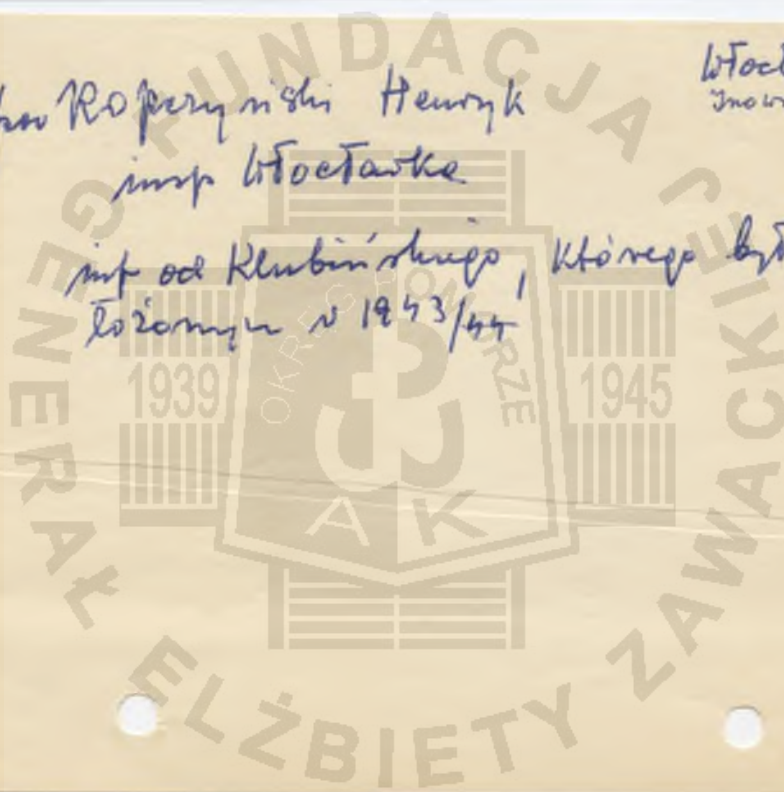 Kopczyński Henryk
Włocł
Inowr
insp Włocławka
inf od Klubińskiego, którego był
łożonym w 1943/44
FUNDACJA
GENERAŁ ELŻBIETY ZAWACKIEJ
OKRĘG POMORZE
1939
1945
AK